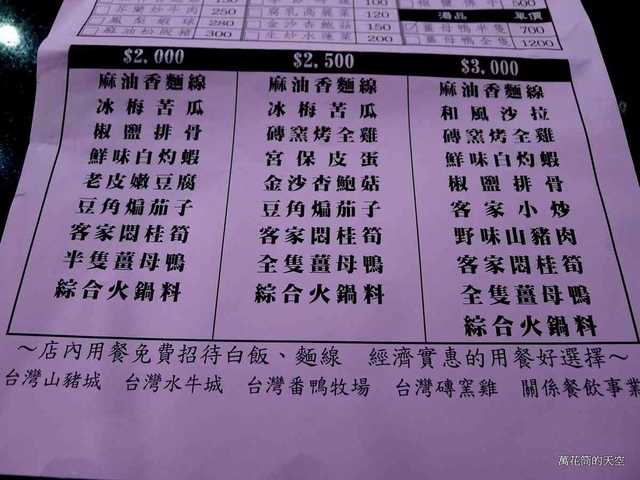 芥蘭炒羊肉 250
鳳梨蝦球 280
麻油松阪豬 300
120
金沙 150
生炒水蓮菜 200
椒鹽佛牛 500
湯品 單價
薑母鴨半隻 700
薑母鴨全隻 1200
$2,000 $2,500 $3,000
麻油香麵線 麻油香麵線 麻油香麵線
冰梅苦瓜 冰梅苦瓜 和風沙拉
椒鹽排骨 磚窯烤全雞 磚窯烤全雞
鮮味白灼蝦 宮保皮蛋 鮮味白灼蝦
老皮嫩豆腐 金沙杏鮑菇 椒鹽排骨
豆角煸茄子 豆角煸茄子 客家小炒
客家悶桂筍 客家悶桂筍 野味山豬肉
半隻薑母鴨 全隻薑母鴨 客家悶桂筍
綜合火鍋料 綜合火鍋料 全隻薑母鴨
綜合火鍋料
～店內用餐免費招待白飯、麵線 經濟實惠的用餐好選擇～
台灣山豬城 台灣水牛城 台灣番鴨牧場 台灣磚窯雞 關係餐飲事業
萬花筒的天空